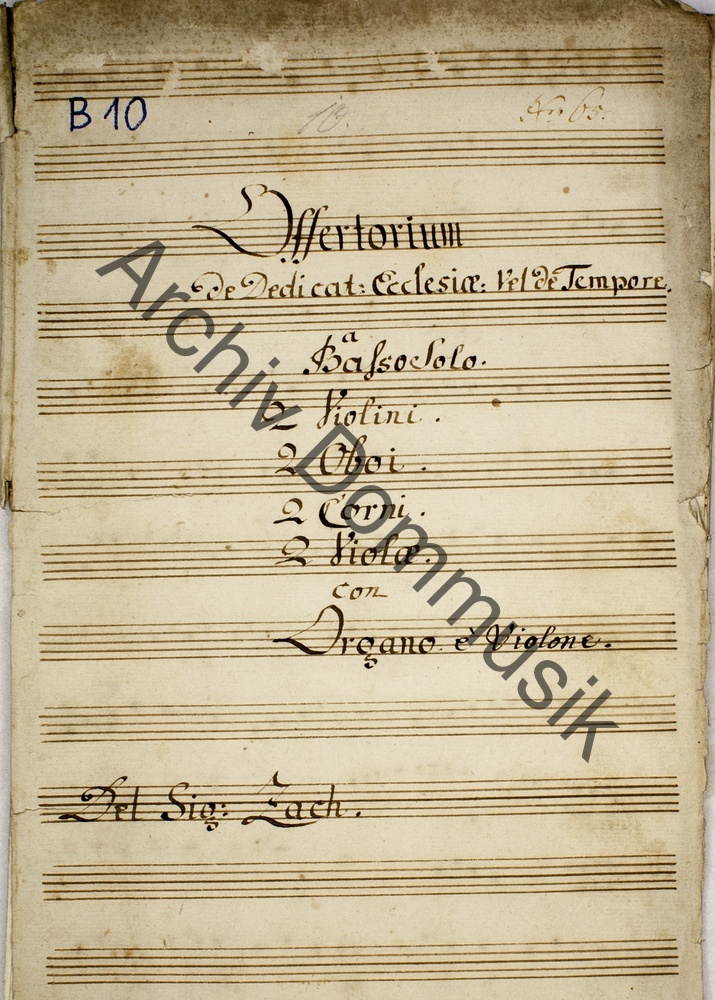 B 10
10.
Nro 65.
Offertorium
de Dedicat: Ecclesiæ: Vel de Tempore.
a
Basso Solo.
2 Violini.
2 Oboi.
2 Corni.
2 Violæ.
con
Organo è Violone.
Del Sig: Zach.
Archiv Dommusik